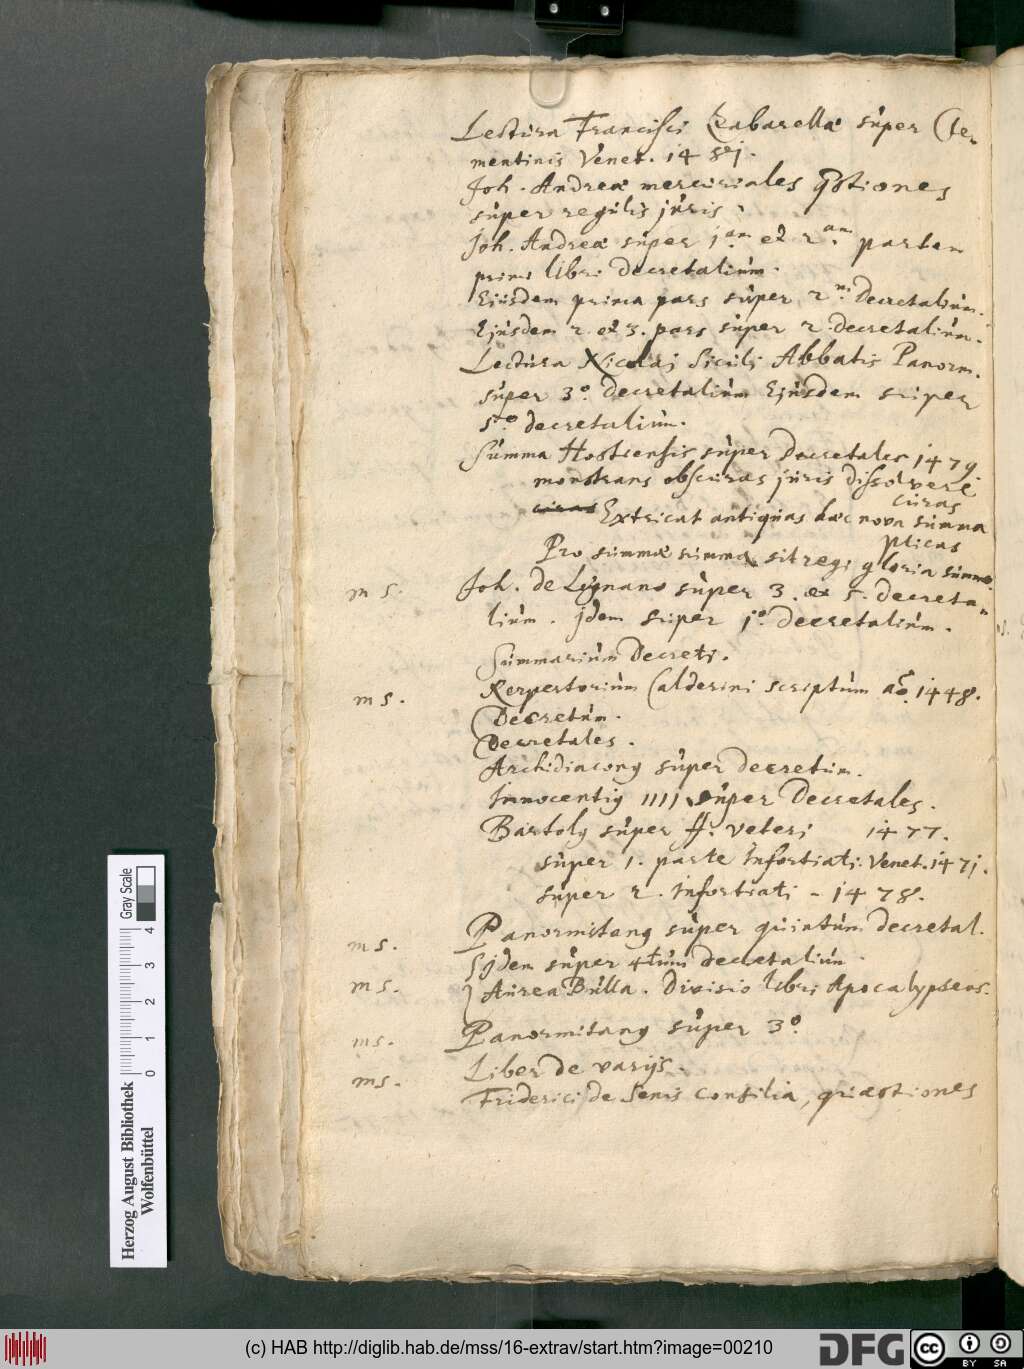 Lectura Francisci Zabarellæ super Cle-
mentinis Venet. 1481.
Joh. Andreæ mercuriales qstiones
super regulis juris.
Joh. Andreæ super 1.am et 2.am partem
primi libri Decretalium.
Ejusdem prima pars super 2.ni Decretalium.
Ejusdem 2. et 3. pars super 2. decretalium.
Lectura Nicolaj Siculi Abbatis Panorm.
super 3.o Decretalium Ejusdem super
5.to decretalium.
Summa Hostiensis super Decretales 1479.
monstrans obscuras juris dissolvere
curas
Extricat antiquas hæc nova summa
plicas
Pro summæ summa sit regi gloria summo.
ms. Joh. de Lignano super 3. et 5. decreta-
lium. jdem super 1.o Decretalium.
Summarium Decreti.
ms. Rerpertorium Calderini scriptum ao. 1448.
Decretum.
Decretales.
Archidiacong super decretum.
Innocentig IIII super Decretales.
Bartolg super ff. veteri 1477.
super 1. parte Infortiati. Venet. 1471.
super 2. Infortiati - 1478.
ms. Panormitang super quintum decretal.
Jdem super 4tum decretalium.
ms. Aurea Bulla. Divisio libri Apocalypseos.
ms. Panormitang super 3.o
Liber de varijs.
ms. Friderici de Senis Consilia, quæstiones
Gray Scale
0 1 2 3 4
Herzog August Bibliothek
Wolfenbüttel
(c) HAB http://diglib.hab.de/mss/16-extrav/start.htm?image=00210
DFG
cc BY SA